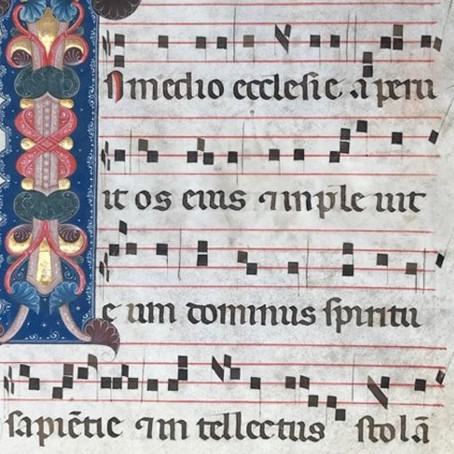 In medio ecclesie aperu
it os eius ⁊ implevit
eum dominus spiritu
sapiētie ⁊ intellectus stolā